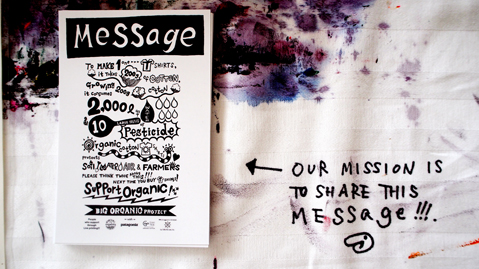 Message
TO MAKE 1 T SHIRTS,
it takes 200g of COTTON,
Growing 200g cotton
it consumes
2,000ℓ
& 10
Pesticide
Organic cotton
protects
SOIL, WATER, AIR & FARMERS
PLEASE THINK TWICE
NEXT TIME YOU BUY
Support Organic!
BIO ORGANIC PROJECT
patagonia
OUR MISSION IS
TO SHARE THIS
MESSage!!!.